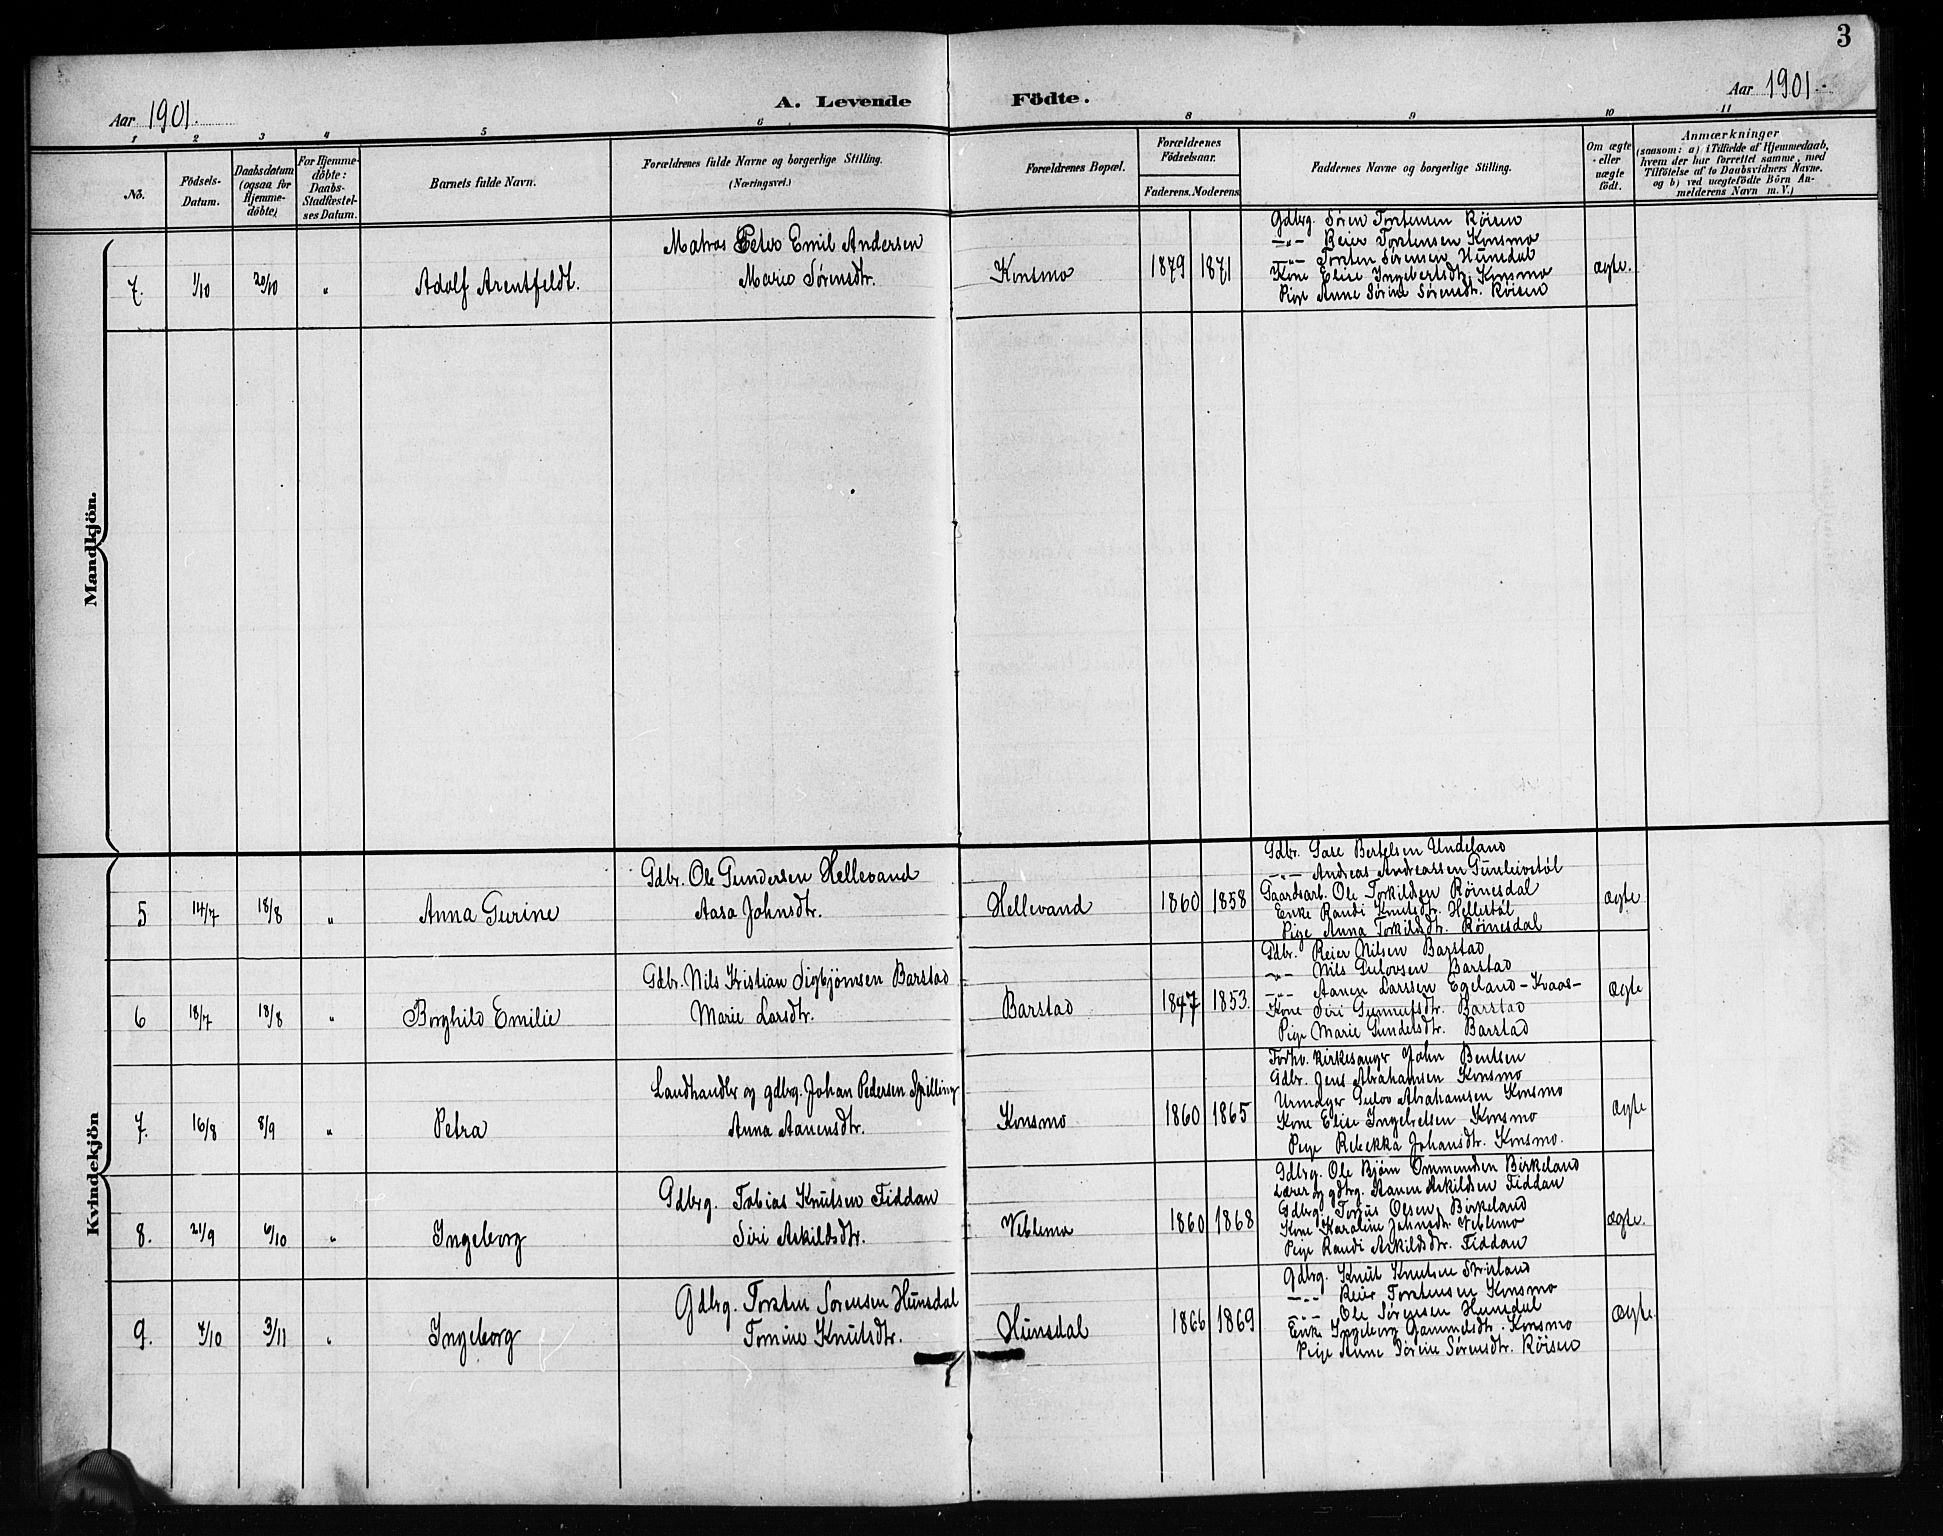 3
Aar 1901.
A. Levende Födte.
Aar 1901.
1 2 3 4 5 6 8 9 10 11
No.
Födsels-Datum.
Daabsdatum (ogsaa for Hjemme-döbte)
For Hjemme-döbte: Daabs-Stadfæstel-ses Datum.
Barnets fulde Navn.
Forældrenes fulde Navne og borgerlige Stilling. (Næringsvei.)
Forældrenes Bopæl.
Forældrenes Födselsaar.
Faderens. Moderens.
Faddernes Navne og borgerlige Stilling.
Om ægte eller uægte födt.
Anmærkninger
(saasom: a) i Tilfælde af Hjemmedaab,
hvem der har forrettet samme, med
Tilföielse af to Daabsvidners Navne,
og b) ved uægtefödte Börn An-
melderens Navn m. V.)
Mandkjön.
7. 1/10 20/10 " Adolf Arentfeldt.
Matros Petro Emil Andersen
Marie Sørensdtr.
Konsmo 1879 1871
Gdbrg. Søren Torstensen Røisen
—"— Reier Torstensen Konsmo
—"— Torsten Sørensen Hunsdal
Kone Elise Ingebertsdtr. Konsmo
Pige Anne Sørine Sørensdtr. Røisen
ægte.
Kvindekjön
5 14/7 18/8 " Anna Gurine
Gdbr. Ole Gundersen Hellevand
Aasa Johnsdtr.
Hellevand 1860 1858
Gdbr. Bertelsen Undeland
—"— Andreas Andreassen Gunleivstøl
Gaardsarb. Ole Torkildsen Røinesdal
Enke Randi Knutsdtr. Hellestøl
Pige Anna Torkildsdtr. Røinesdal
ægte
6 18/7 18/8 " Borghild Emilie
Gdbr. Nils Kristian Sigbjørnsen Barstad
Marie Larsdtr.
Barstad 1847 1853.
Gdbr. Reier Nilsen Barstad
—"— Nils Gulovsen Barstad
—"— Aanen Larssen Egeland - Kvaas -
Kone Siri Barstad
Pige Marie Barstad
ægte
7. 16/8 8/9 " Petra
Landhandler og gdbrg. Johan Pedersen Spilling
Anna Aanensdtr.
Konsmo 1860 1865
Forhv. kirkesanger John Bentsen
Gdbr. Jens Abrahamsen Konsmo
Urmager Gulov Abrahamsen Konsmo
Kone Elise Konsmo
Pige Rebekka Johansdtr. Konsmo.
ægte
8. 21/9 6/10 " Ingeborg
Gdbrg. Tobias Knutsen Fiddan
Siri Askildsdtr.
Veblemo 1860 1868
Gdbrg. Ole Bjørn Ommundsen Birkeland
Lærer og gdbrg. Aanen Askildsen Fiddan
Gdbrg. Torjus Olsen Birkeland
Kone Karoline Johnsdtr. Veblemo
Pige Randi Askildsdtr. Fiddan
ægte.
9. 7/10 3/11 " Ingeborg
Gdbrg. Torsten Sørensen Hunsdal
Tomine Knutsdtr.
Hunsdal 1866 1869
Gdbrg. Knut Knutsen
—"— Reier Torstensen Konsmo
—"— Ole Sørensen Hunsdal
Enke Ingeborg Gammelsdtr. Konsmo
Pige Anne Sørine Sørensdtr. Røisen
ægte.